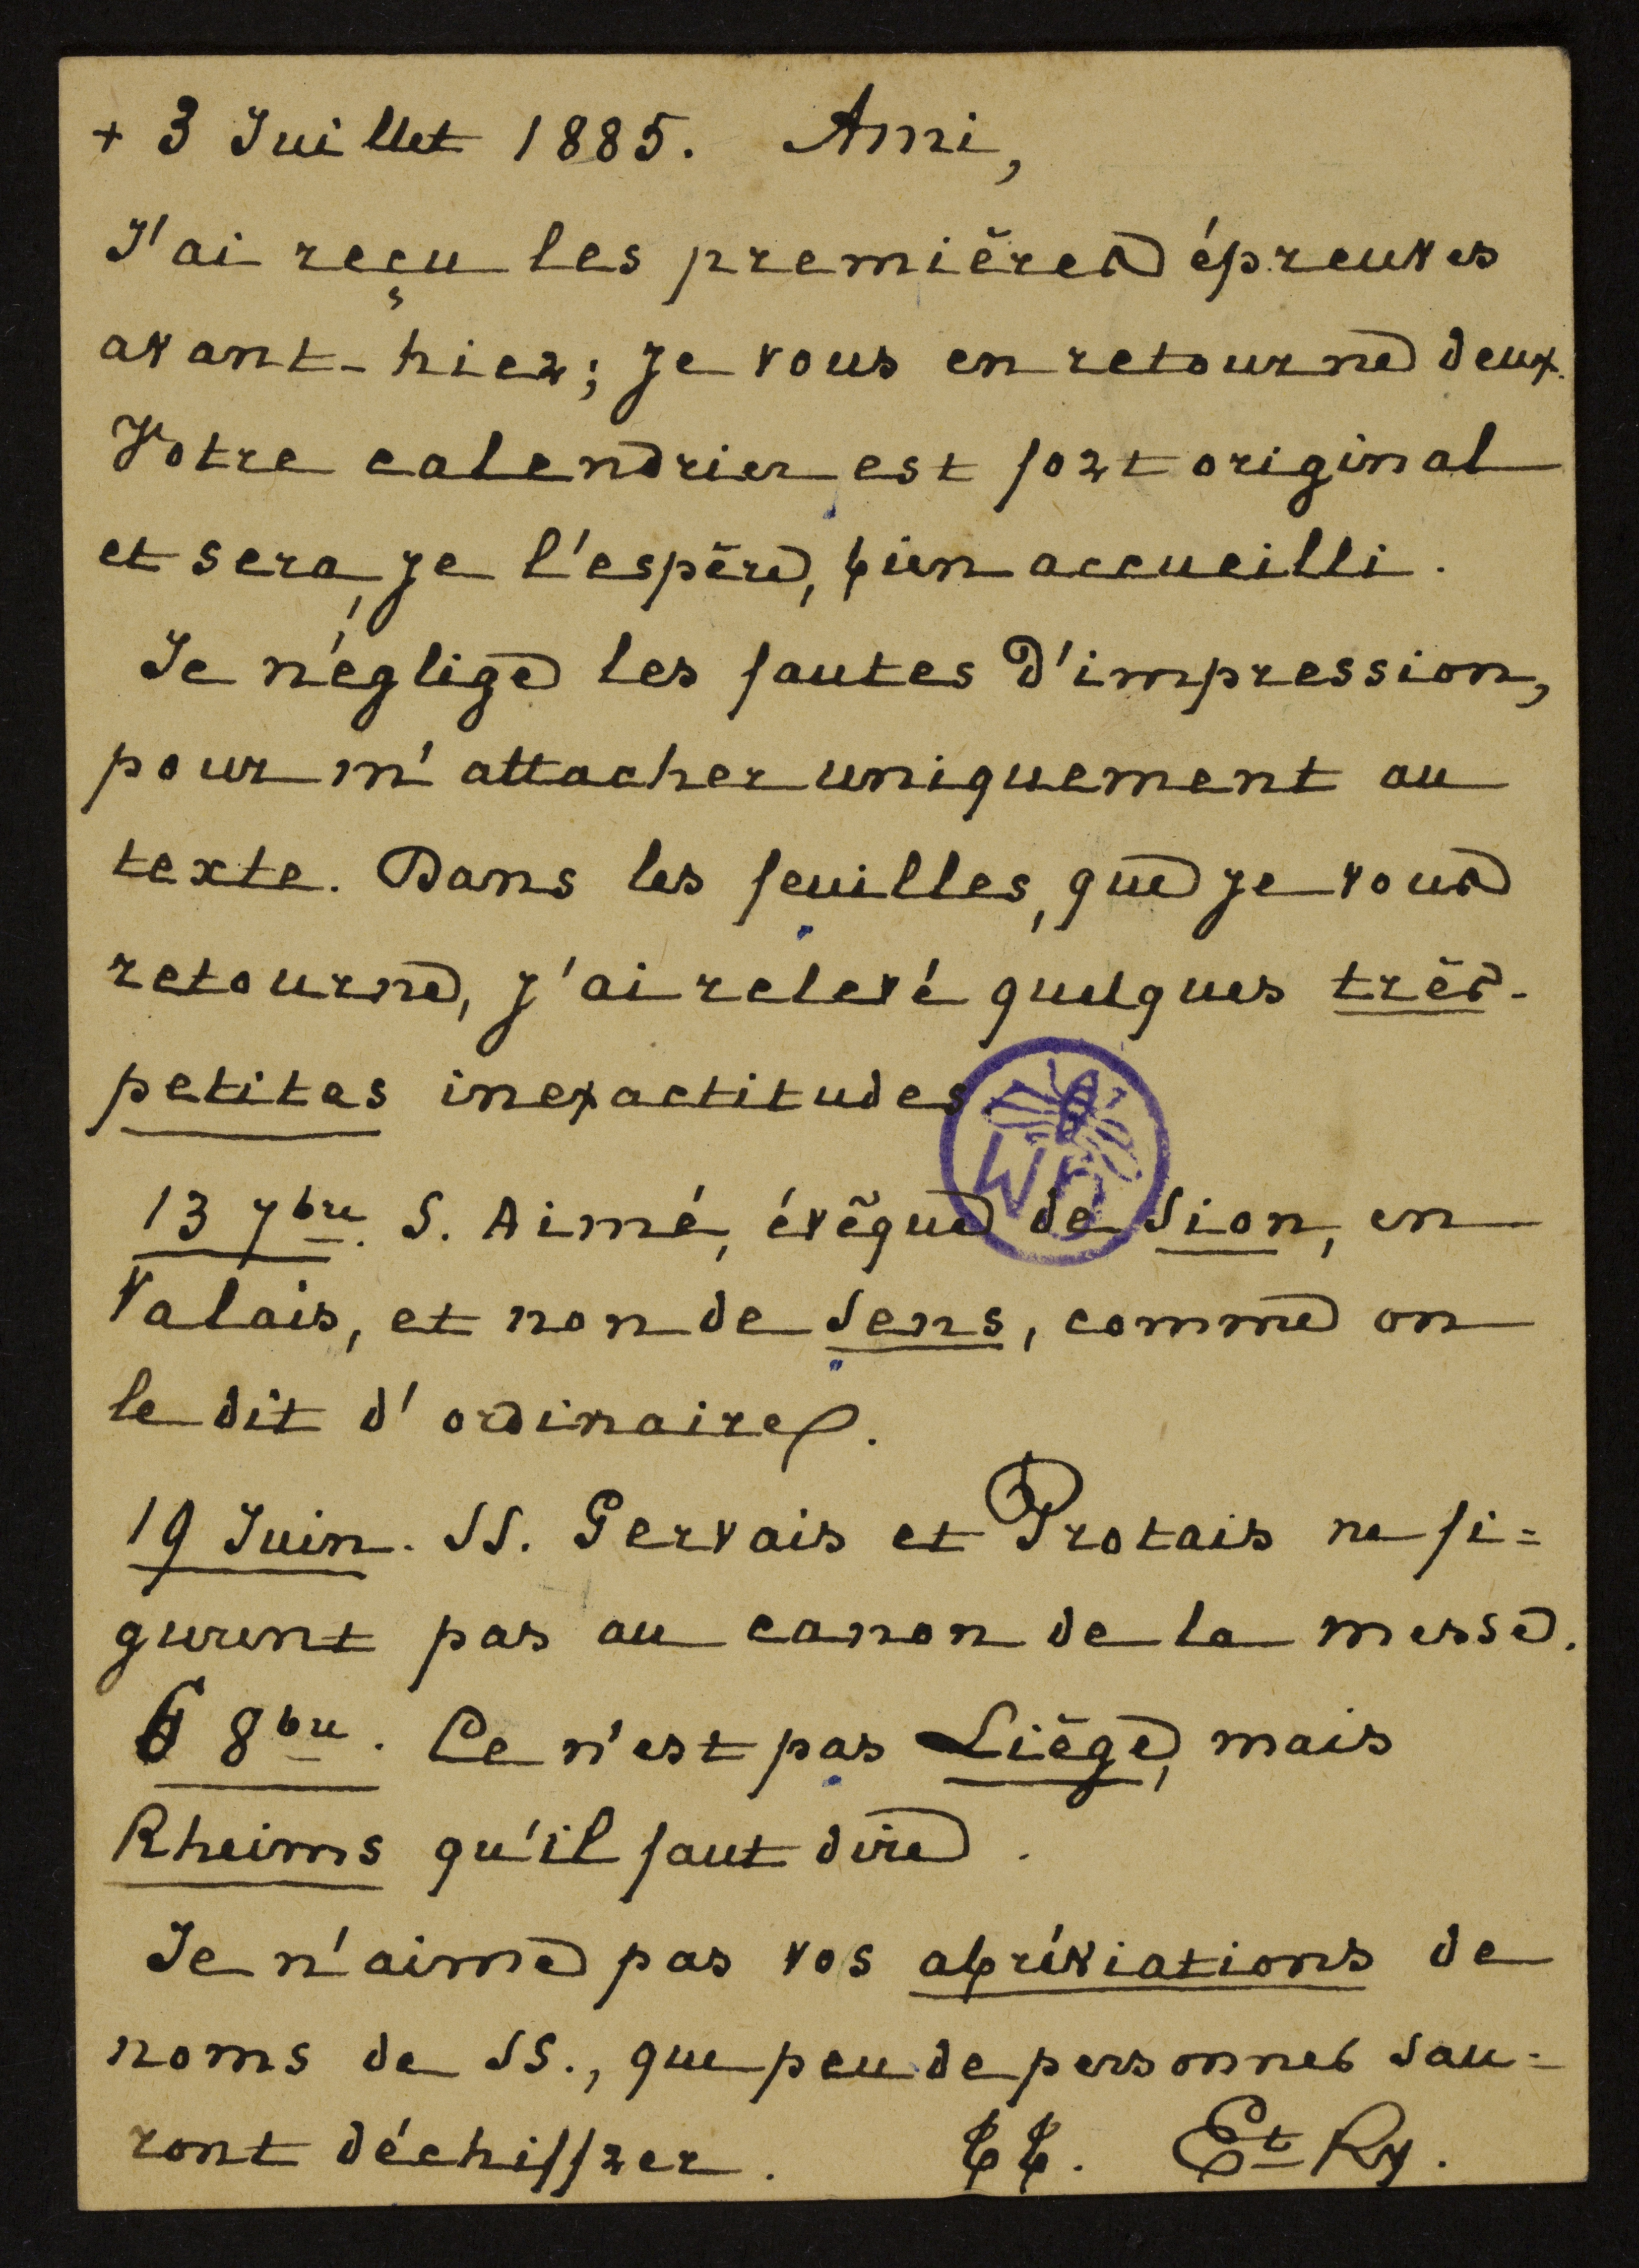 + 3 Juillet 1885. Ami,
J'ai reçu les premières épreuves
avant-hier; je vous en retourne deux.
Votre calendrier est fort original
et sera, je l'espère, bien accueilli.
Je néglige les fautes d'impression,
pour m'attacher uniquement au
texte. Dans les feuilles, que je vous
retourne, j'ai relevé quelques très-
petites inexactitudes.
13 7bre. S. Aimé, évêque de Sion, en
Valais, et non de Sens, comme on
le dit d'ordinaire.
19 Juin. SS. Gervais et Protais ne fi=
gurent pas au canon de la messe.
6 8bre. Ce n'est pas Liège, mais
Rheims qu'il faut dire.
Je n'aime pas vos abréviations de
noms de SS., que peu de personnes sau=
ront déchiffrer. tt. Et Ry.
WB